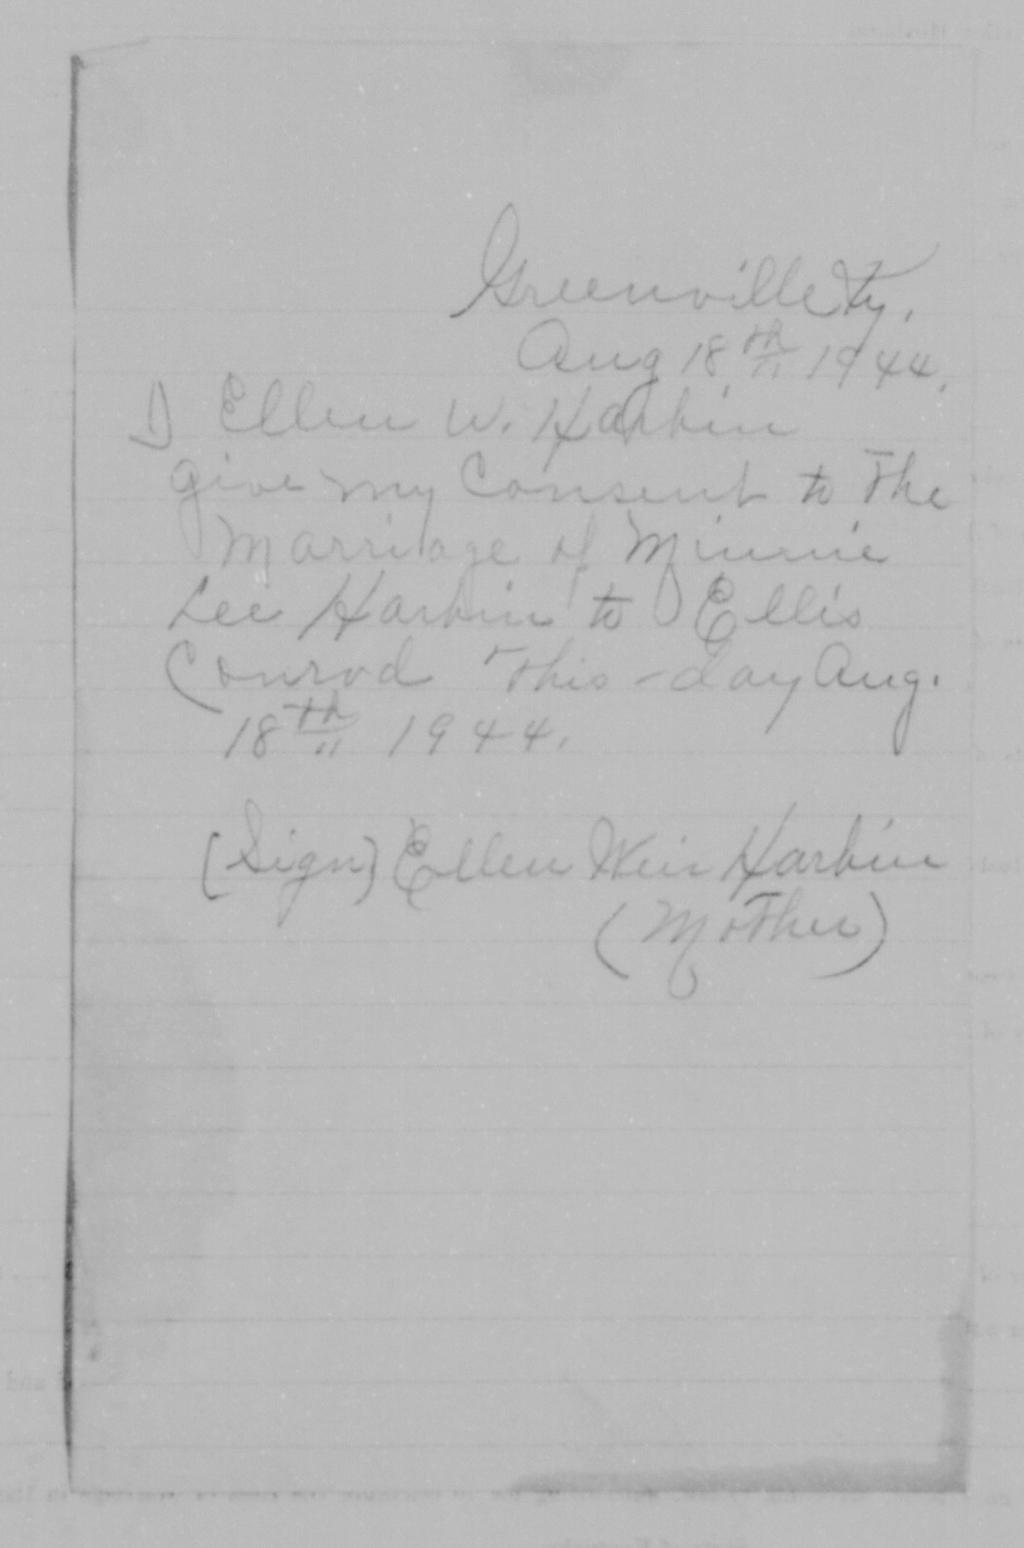 Greenville Ky.
Aug 18th 1944.
I Ellen W. Harbin
give my Consent to the
Marriage of Minnie
Lee Harbin to Ellis
Conrod this-day Aug.
18th 1944.
(Sign) Ellen Weir Harbin
(Mother)